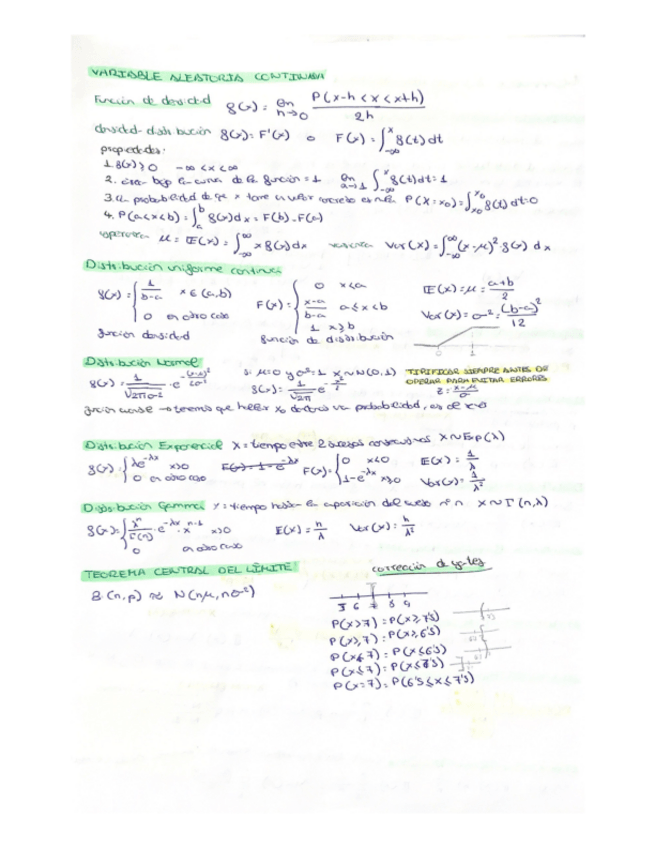 VARIABLE ALEATORIA CONTINUA
Función de densidad g(x) = lim h→0 P(x-h < x < x+h) / 2h
densidad-distribución g(x) = F'(x) o F(x) = ∫_{-∞}^{x} g(t) dt
propiedades:
1. g(x) ≥ 0 -∞ < x < ∞
2. área bajo la curva de la función = 1 lim ∫_{-∞}^{x} g(t) dt = 1
3. la probabilidad de que x tome un valor concreto es nula P(X = x₀) = ∫_{x₀}^{x₀} g(t) dt = 0
4. P(a<x<b) = ∫_{a}^{b} g(x) dx = F(b) - F(a)
esperanza μ = E(x) = ∫_{-∞}^{∞} x g(x) dx varianza Var(X) = ∫_{-∞}^{∞} (x-μ)² g(x) dx
Distribución uniforme continua
g(x) = { 1/(b-a) x ∈ (a,b) ; 0 en otro caso F(x) = { 0 x<a ; (x-a)/(b-a) a≤x<b ; 1 x≥b E(x) = μ = (a+b)/2
Var(x) = σ² = (b-a)²/12
función densidad función de distribución 0 1
Distribución Normal si μ=0 y σ²=1 x∼N(0,1) TIPIFICAR SIEMPRE ANTES DE
OPERAR PARA EVITAR ERRORES
g(x) = 1/√(2πσ²) · e^{-(x-μ)²/2σ²} g(x) = 1/√(2π) e^{-x²/2} z = (x-μ)/σ
→ tenemos que hallar x₀ dada una probabilidad, es al revés
Distribución Exponencial X = tiempo entre 2 sucesos consecutivos X∼Exp(λ)
g(x) = { λe^{-λx} x>0 ; 0 en otro caso F(x) = 1-e^{-λx} F(x) = { 0 x<0 ; 1-e^{-λx} x≥0 E(x) = 1/λ
Var(x) = 1/λ²
Distribución Gamma Y = tiempo hasta la aparición del suceso nº n X∼Γ(n,λ)
g(x) = { λⁿ/Γ(n) · e^{-λx} · x^{n-1} x>0 ; 0 en otro caso E(x) = n/λ Var(x) = n/λ²
TEOREMA CENTRAL DEL LÍMITE
B(n,p) ≈ N(nμ, nσ²)
corrección de yates
5 6 7 8 9
P(x>7) = P(x≥7'5)
P(x≥7) = P(x≥6'5)
P(x<7) = P(x≤6'5)
P(x≤7) = P(x≤
P(x=7) = P(6'5≤x≤7'5)